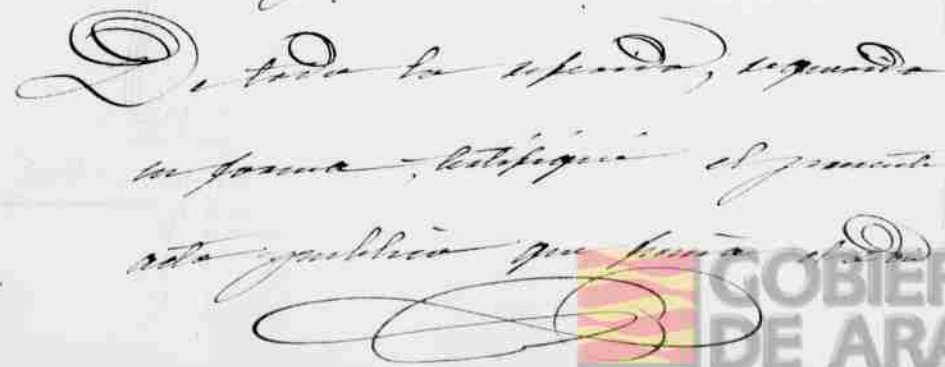 De todo lo referido, requerido
en forma, testifiqué el presente
acto público que
GOBIER
DE ARA